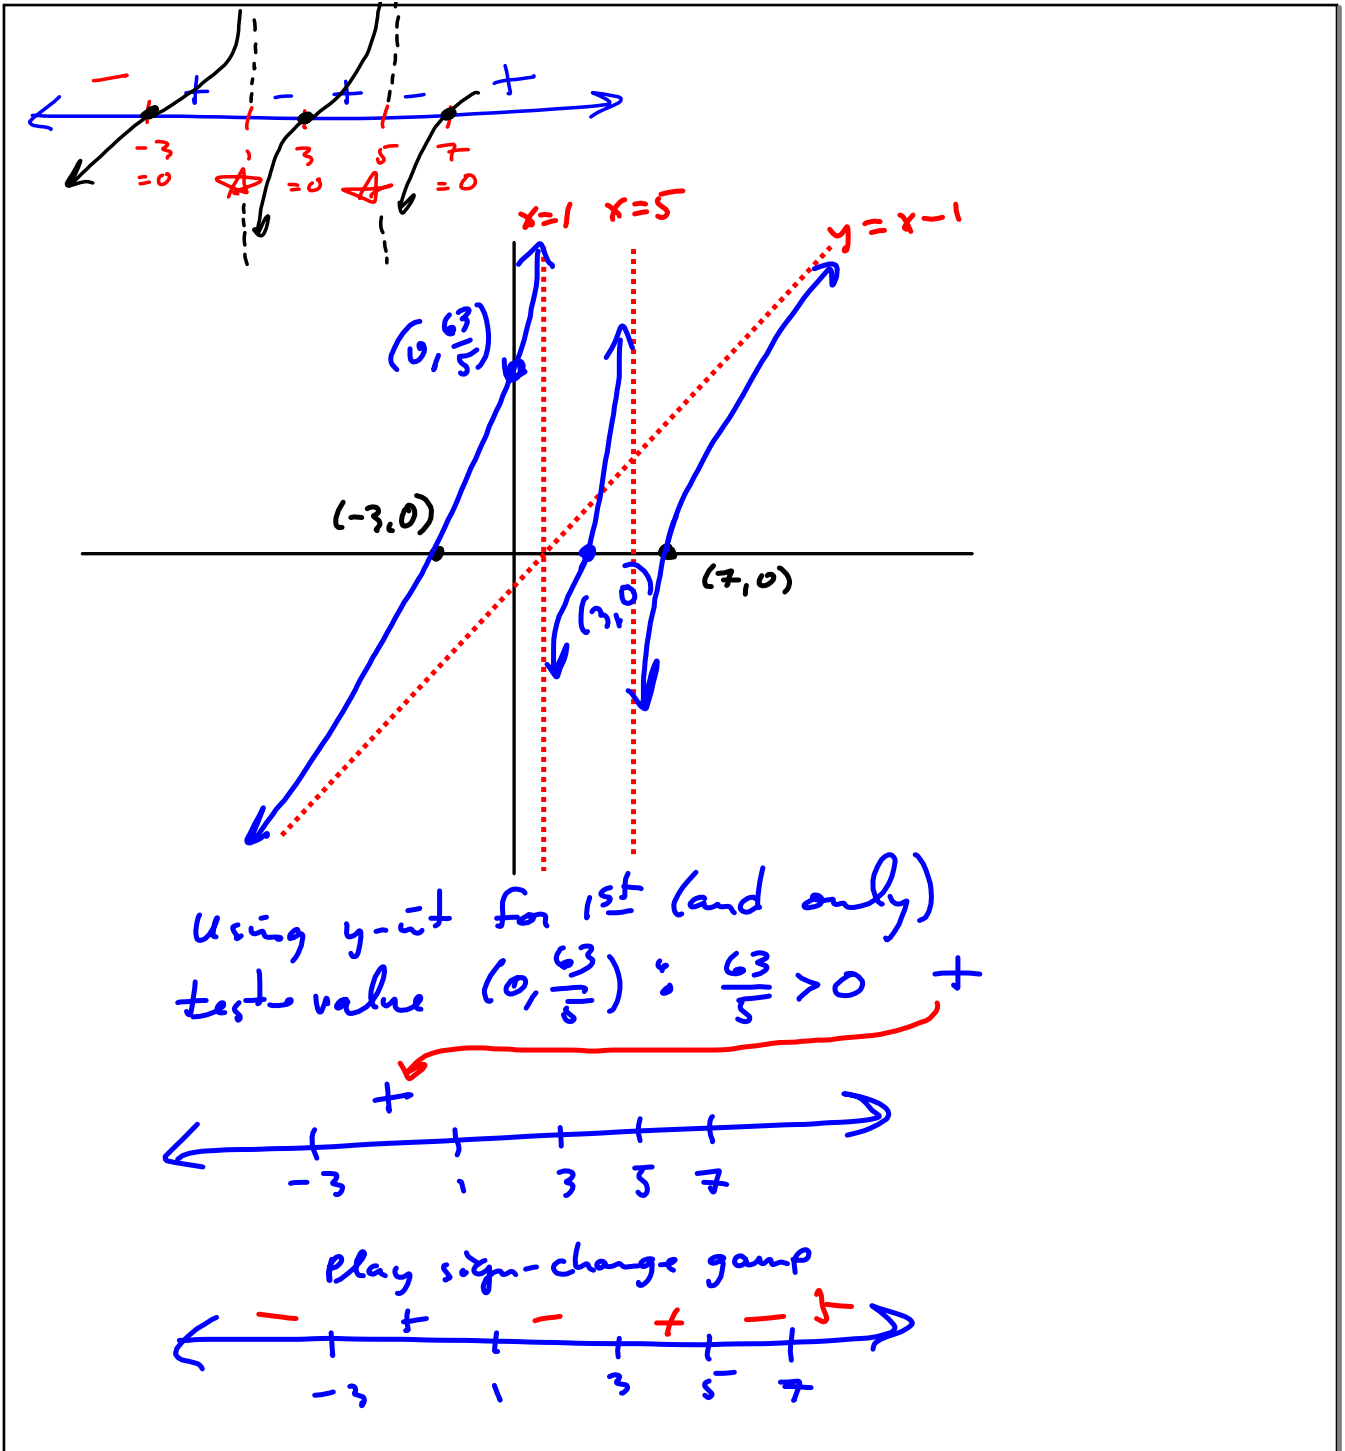 − + − + − +
−3 1 3 5 7
=0 =0 =0
x=1 x=5 y = x−1
(0, 63/5)
(−3,0)
(7,0)
(3,0)
Using y-int for 1st (and only)
test-value (0, 63/5) : 63/5 > 0 +
+
−3 1 3 5 7
Play sign-change game
− + − + − +
−3 1 3 5 7